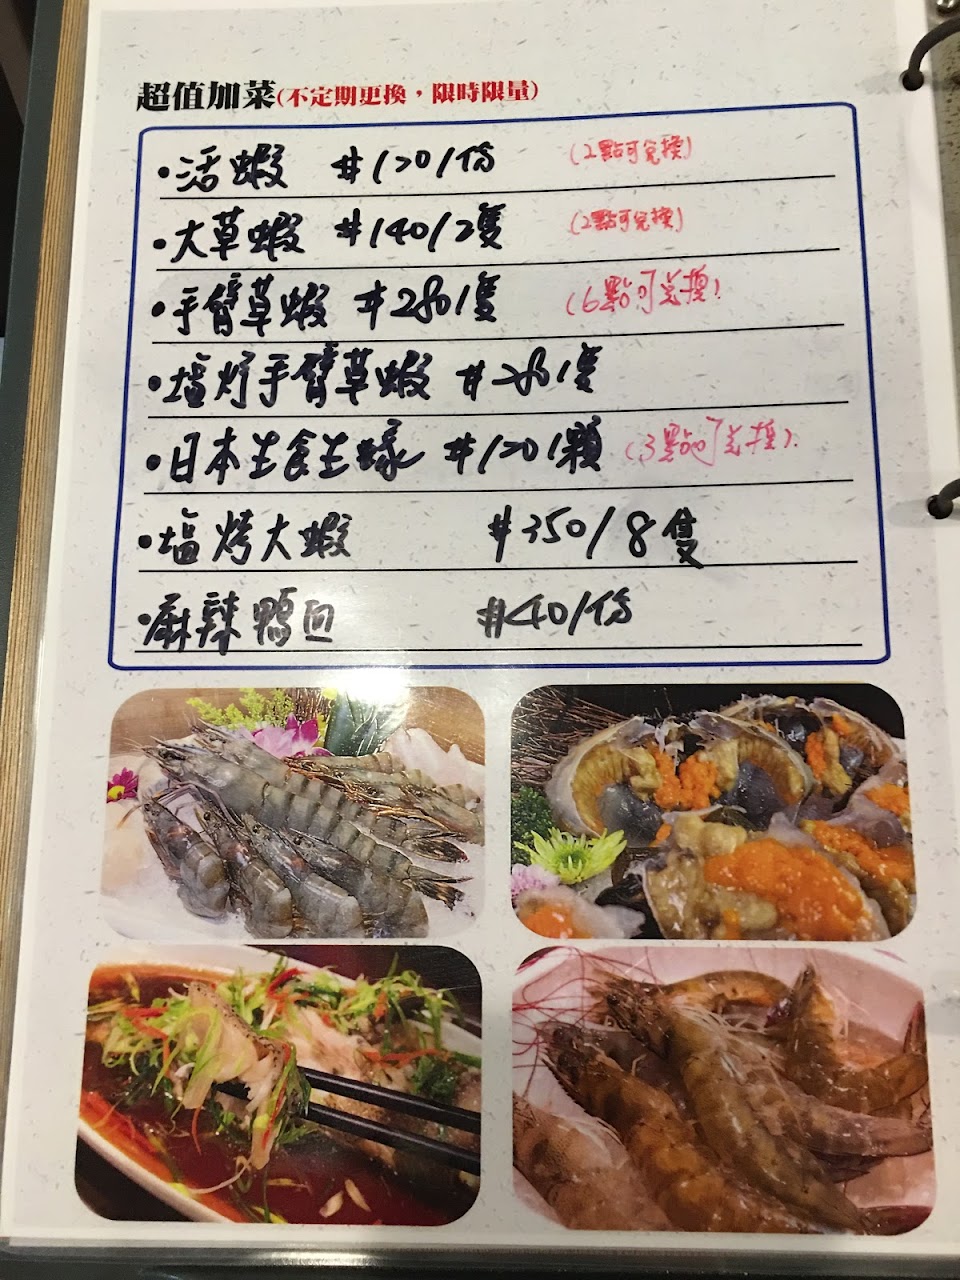 超值加菜(不定期更換，限時限量)
•活蝦 #120/份 (2點可兌換)
•大草蝦 #140/2隻 (2點可兌換)
•手臂草蝦 #280/隻 (6點可兌換)
•塩烤手臂草蝦 #280/隻
•日本生食生蠔 #120/顆 (3點可兌換)
•塩烤大蝦 #350/8隻
•麻辣鴨血 #40/份